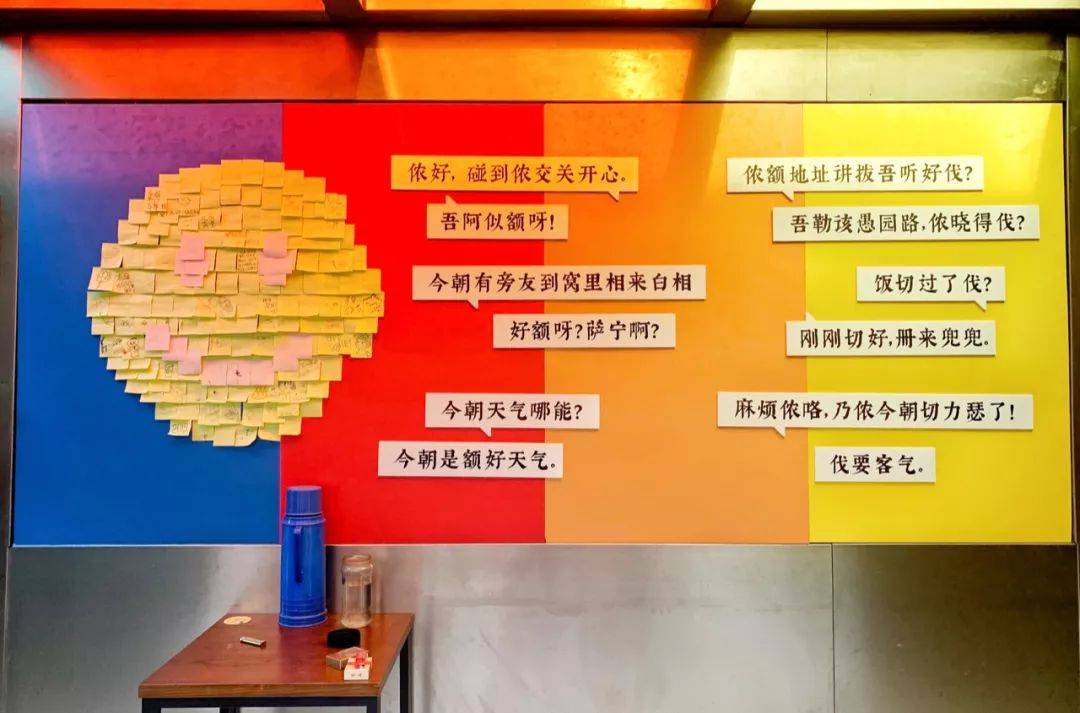 侬好，碰到侬交关开心。
吾阿似额呀！
今朝有旁友到窝里相来白相
好额呀？萨宁啊？
今朝天气哪能？
今朝是额好天气。
侬额地址讲拨吾听好伐？
吾勒该愚园路，侬晓得伐？
饭切过了伐？
刚刚切好，册来兜兜。
麻烦侬咯，乃侬今朝切力瑟了！
伐要客气。